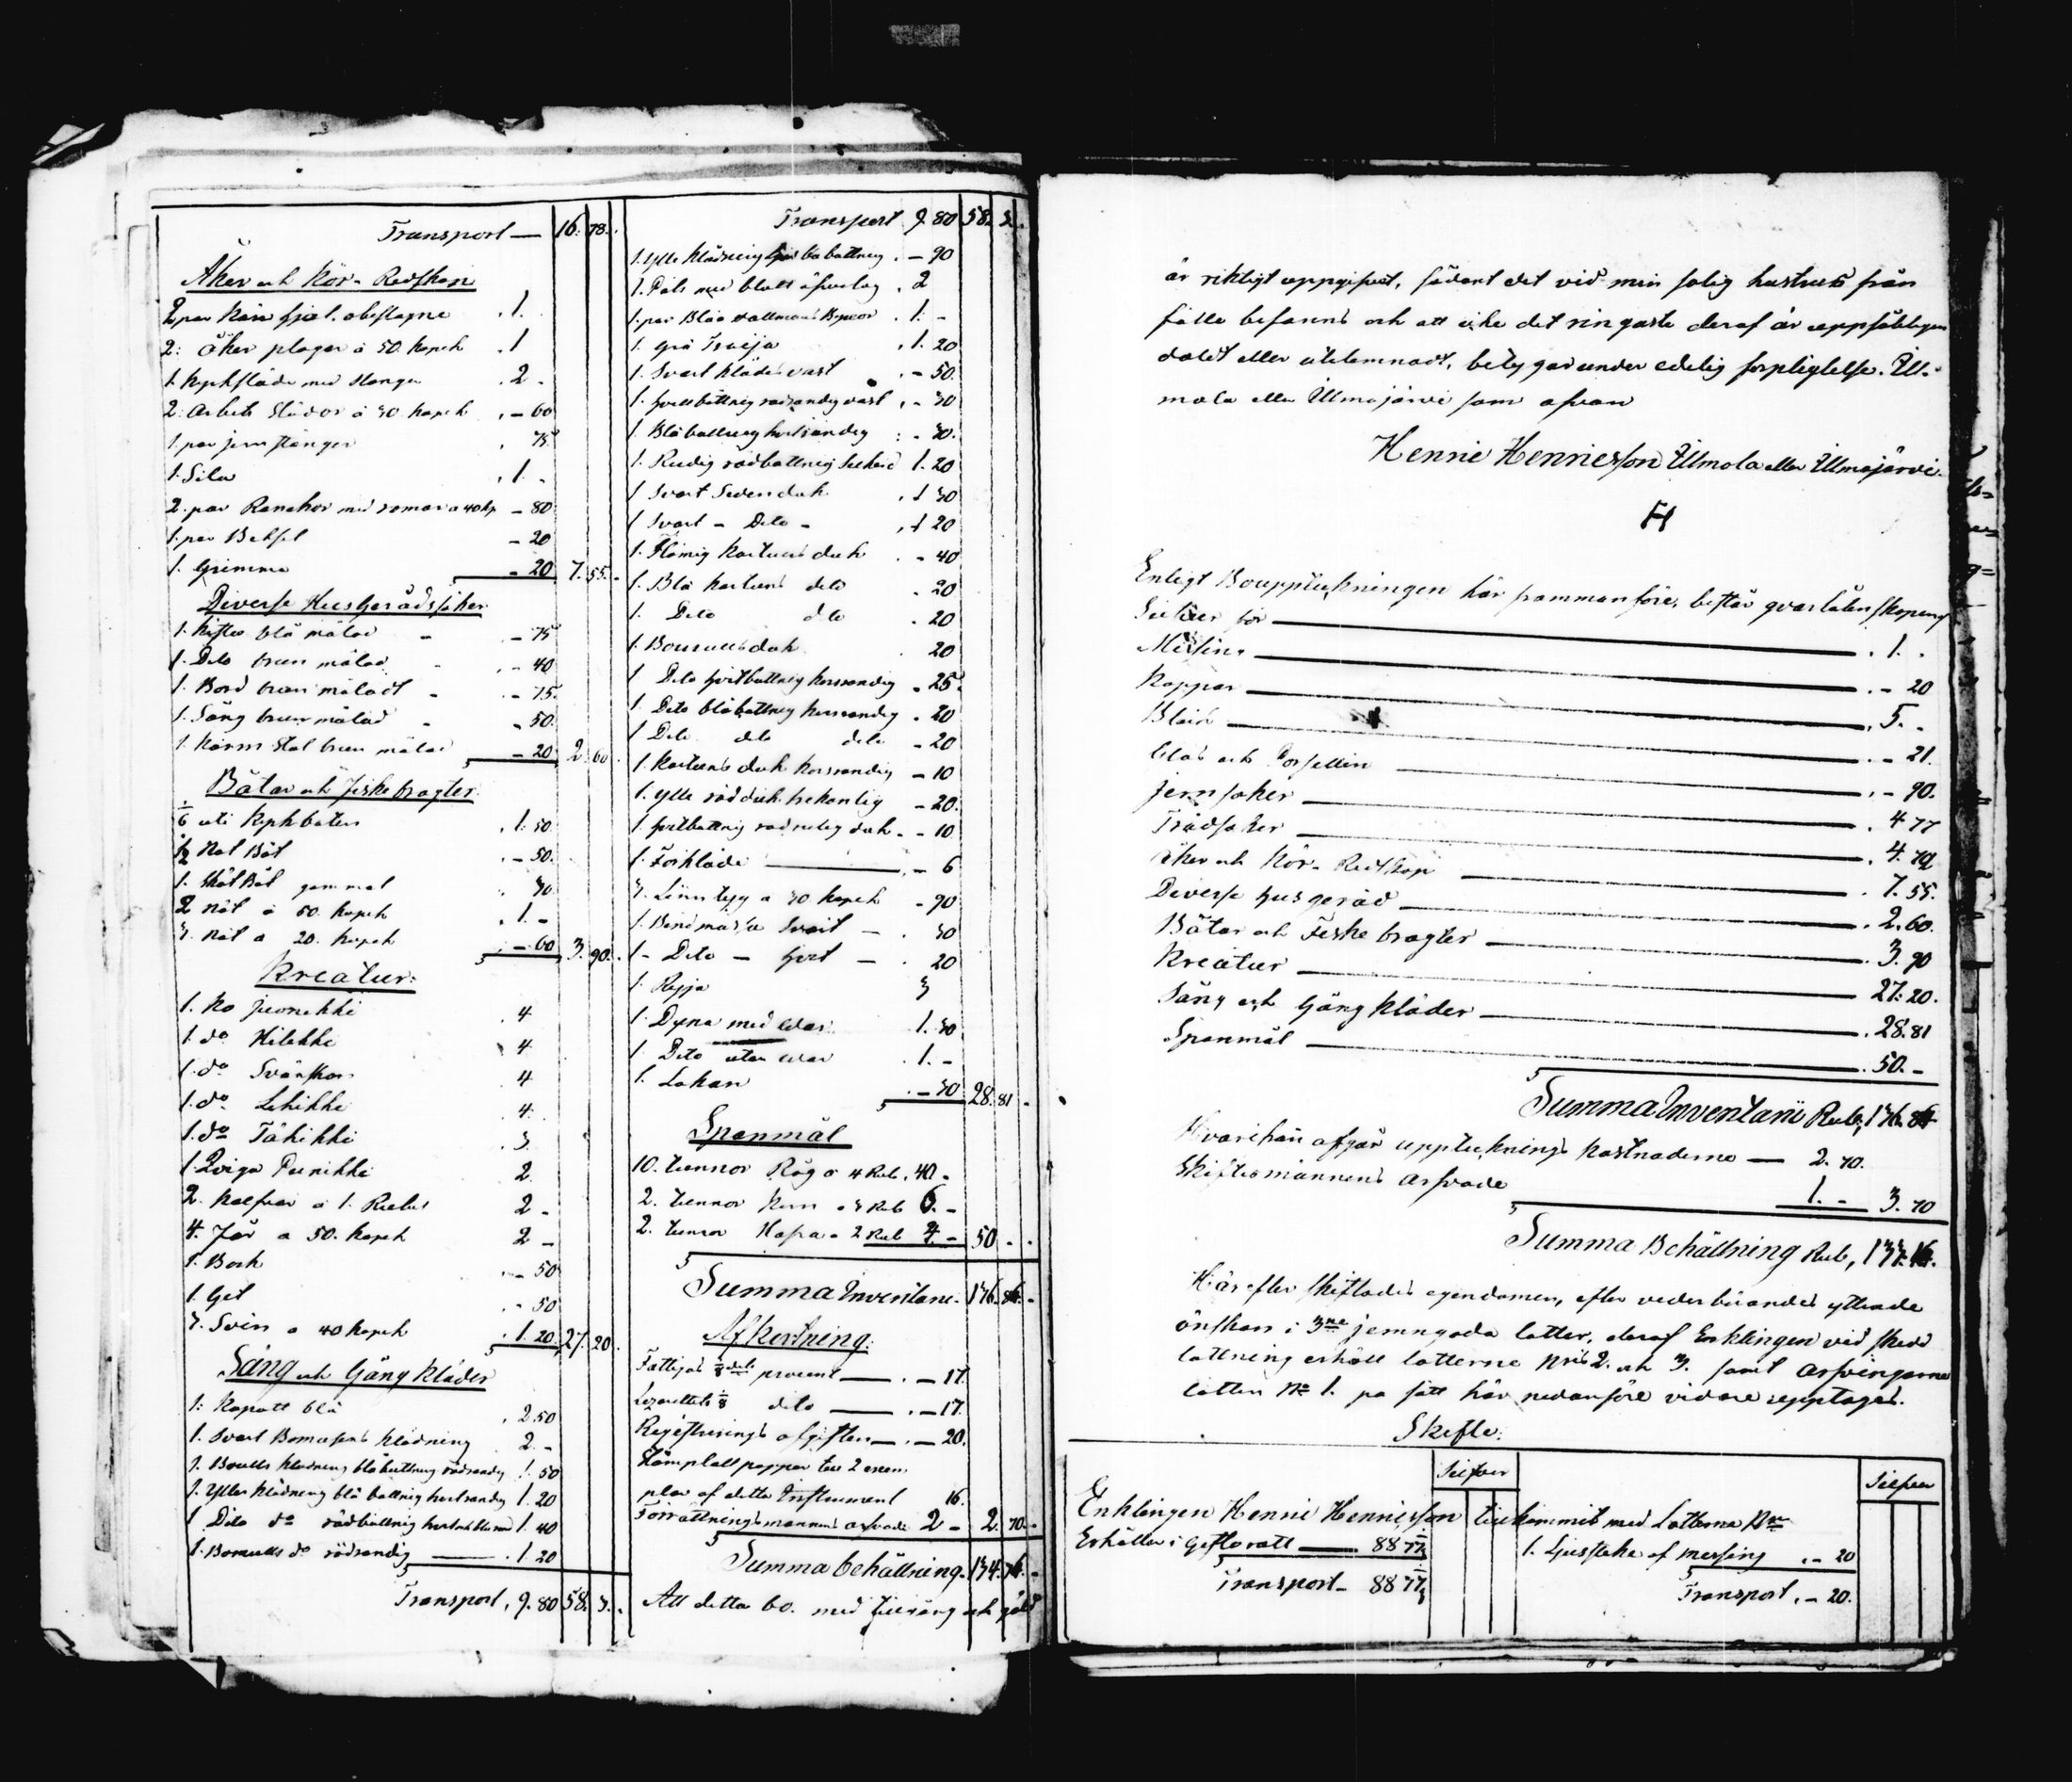 Transport — 16. 78.
Åker och Kör-Redskap
2 par Kärr hjul. obeslagne . 1.
2: Åker plogar à 50. kopek . 1
1. Kyrksläde med stänger . 2 -
2: Arbets Slädor à 30 kopek . – 60
1. par jernstänger . 75
1. Sila . 1 -
2. par Rankor med romar a 40 kp – 80
1. par Betsel – 20
1. Grimma – 20 7. 55. -
Diverse Husgerådssaker
1. Kista blå målad – – 75
1. Dito brun målad – – 40
1. Bord brun måladt – – 75.
1. Säng brun målad – 50.
1. Karm stol brun målad – 20 2. 60
Båtar och Fiskebragter
1/6 uti Kyrkbåten . 1. 50
1/2 Not Båt . – 50.
1. Sköt Båt gammal . 30
2 Nät à 50. kopek . 1. –
3. Nät a 20. kopek . – 60 3. 90.
Kreatur:
1. Ko Juonikki . 4
1. do Hilikki 4
1. do Svänskan . 4
1. do Lehikki . 4.
1. do Tähikki . 3.
1. Qviga Punikki 2.
2. Kalfvar a 1. Rubel 2 -
4. Får a 50. kopek 2 –
1. Bock . – 50
1. Get . – 50
3. Svin a 40 kopek . 1. 20 27. 20.
Säng och Gång Kläder
1: Kapott blå . 2 50
1. Svart Bomasins klädning . 2. -
1. Bomulls klädning blåbottnig rödrandig 1. 50
1. Ylle klädning blå bottnig korsrandig 1. 20
1 Dito do rödbottnig 1. 40
1. Bomulls do rödrandig . 1 20
Transport, 9. 80 58. 3.
Transport 9. 80 58. 3.
1. Ylle klädning bottnig . – 90
1. Päls med blått öfverdrag . 2
1. par Blåa vallmans Byxor . 1. -
1. Grå Tröija . 1. 20
1. Svart klädes vast . – 50.
1. hvitbottnig rödrandig vast . – 30
1. Blåbottnig korsrandig : – 30.
1. Rudig rödbottnig 1. 20
1 Svart Sidenduk . 1 30
1 Svart – Dito – . 1 20
1. Flamig Kartuns duk . – 40
1. Blå kartuns dito . 20
1. Dito dito . 20
1. Bomullsduk 20
1 Dito hvitbottnig korsrandig . 25.
1. Dito blåbottnig korsrandig . 20
1 Dito dito dito – 20
1. Kartuns duk korsrandig – 10
1. Ylle röd duk trekantig – 20.
1. hvitbottnig rödrutig duk. – 10
1. Förkläde — . – 6
3. Linntyg a 30 kopek – 90
1. Bindmössa Svart – . 30
1– Dito – hvit – . 20
1. Ryja 3
1. Dyna med War . 1. 30
1. Dito utan war . 1. –
1. Lakan . – 30 28. 81 -
Spanmål
10. tunnor Råg a 4 Rub. 40. -
2. tunnor Korn a 3 Rub 6. –
2. tunnor Hafra a 2 Rub 4 – 50 - .
Summa Inventarii 136. 84. -
Afkortning:
Fattigas 1/8 dels procent — . – 17.
Lazarettets 1/8 dito — . – 17.
Registrerings afgiften — . – 20.
Stämplatt papper till 2 exem-
plar af detta Instrument 16.
Förrättningsmannens arfvode 2 – 2. 70. -
Summa behållning. 134. 14. -
Att detta bo. med tillgång och gäld
är riktigt uppgifvet, sådant det vid min salig hustrus från-
fälle befanns och att icke det ringaste deraf är uppsåtligen
doldt eller utelemnadt, betygar under edelig förpligtelse. Ill-
mola eller Illmajärvi som ofvan
Henric Henricsson Illmola eller Illmajärvi.
H
Enligt Bouppteckningen här framman före, bestär qvarlåtenskapen
Silfver för — . 1. .
Messing — . – 20
Koppar — . 5. -
Bläck — . – 21.
Glas och Porsellin — . – 90.
Jernsaker — . 4 77
Trädsaker — . 4. 70
Åker och Kör-Redskap — . 7. 55.
Diverse Husgeråd — . 2. 60.
Båtar och Fiske bragter — 3. 90
Kreatur — 27: 20.
Säng och Gång kläder — . 28. 81
Spanmål — . 50. –
Summa Inventarii Rub, 136. 84
Hvarifrån afgår uppteckningskostnaderne — 2. 70.
Skiftesmannens arfvode 1. – 3. 70
Summa Behållning Rub, 133. 14.
Härefter skiftades egendomen, efter vederbörandes yttrade
önskan i 3ne jemngoda lotter, deraf Enklingen vid skedd
lottning erhöll lotterne Nris 2. och 3. samt arfvingarna
lotten No 1. på sätt här nedanföre vidare upptages.
Skifte:
Silfver Silfver
Enklingen Henric Henricsson
Erhåller i Giftorätt — 88 77
Transport – 88 77
tillkommit med Lotterna Nris
1. Ljusstake af messing . – 20
Transport . – 20.